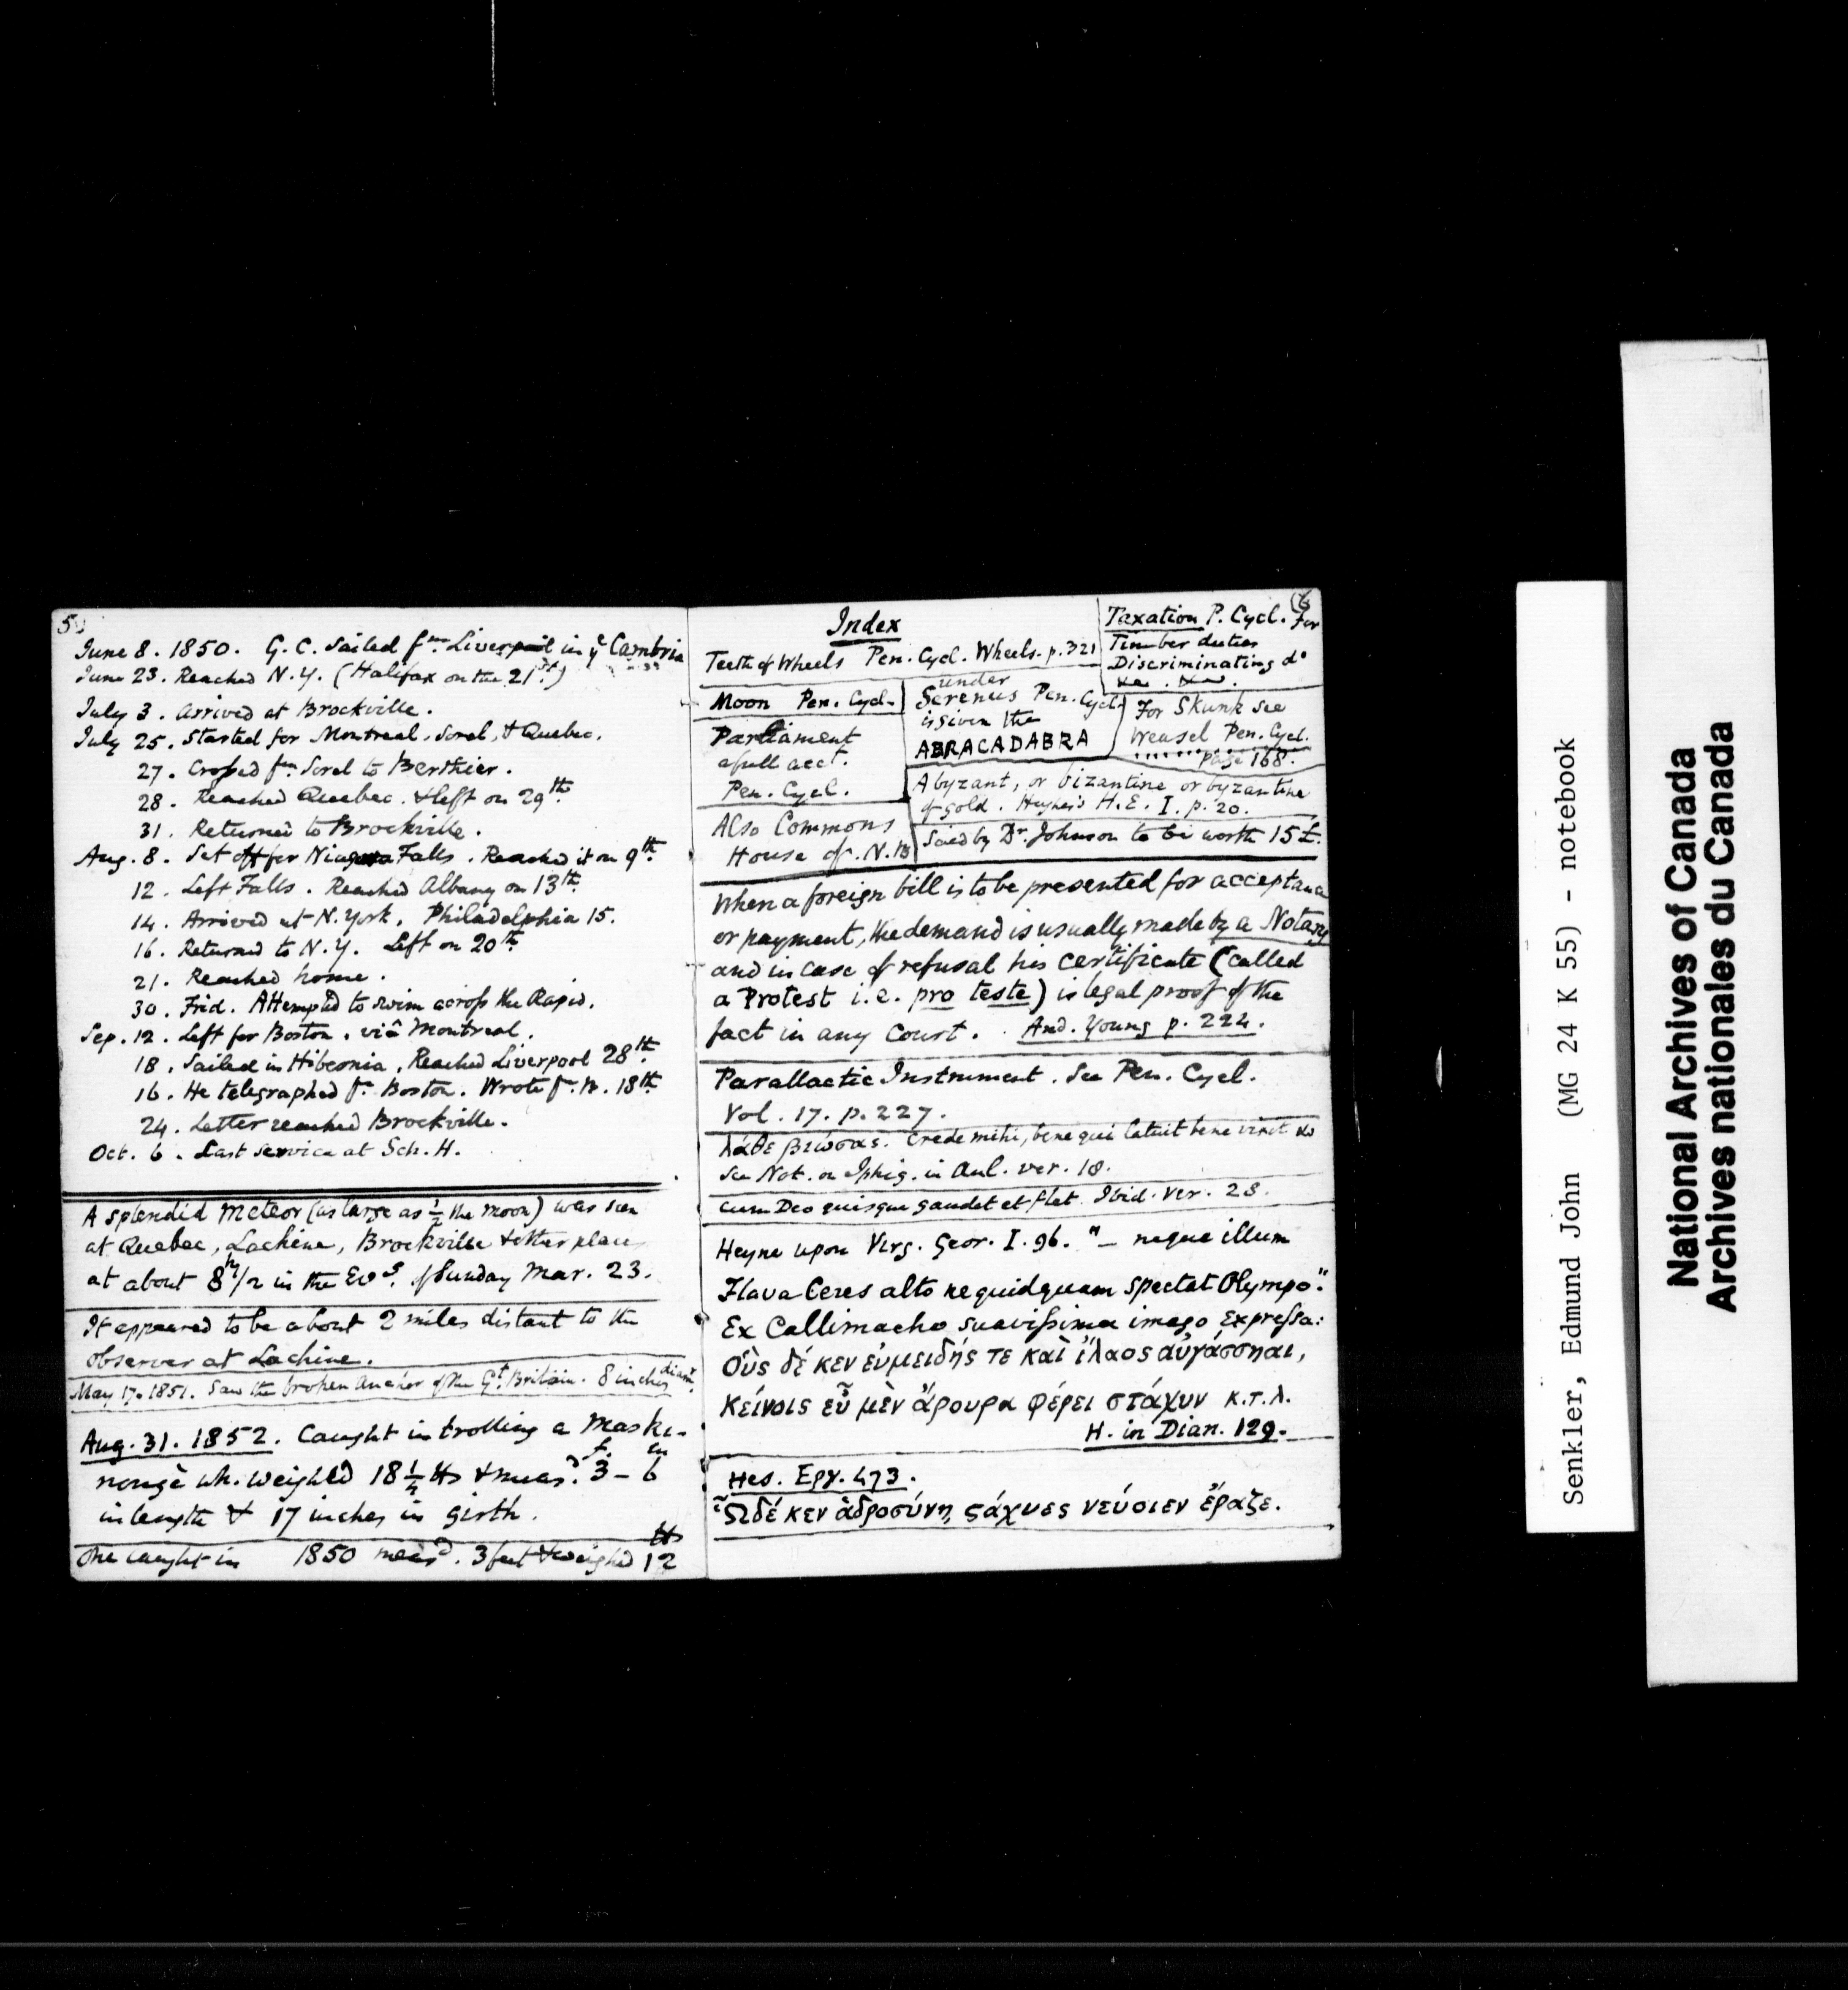 5
June 8. 1850. G. C. sailed fm. Liverpool in ye Cambria
June 23. Reached N.Y. (Halifax on the 21st.)
July 3. Arrived at Brockville.
July 25. Started for Montreal, Sorel, & Quebec.
27. Crossed fm. Sorel to Berthier.
28. Reached Quebec. & left on 29th.
31. Returned to Brockville.
Aug. 8. Set off for Niagara Falls. Reached it on 9th.
12. Left Falls. Reached Albany on 13th.
14. Arrived at N. York. Philadelphia 15.
16. Returned to N.Y. Left on 20th.
21. Reached home.
30. Frid. Attempted to swim across the Rapid.
Sep. 12. Left for Boston. viâ Montreal.
18. Sailed in Hibernia. Reached Liverpool 28th.
16. He telegraphed f. Boston. Wrote f. B. 18th.
24. Letter reached Brockville.
Oct. 6. Last service at Sch. H.
A splendid Meteor (as large as ½ the moon) was seen
at Quebec, Lachine, Brockville & other places
at about 8h/2 in the Evg. of Sunday Mar. 23.
It appeared to be about 2 miles distant to the
observer at Lachine.
May 17. 1851. Saw the broken Anchor of the Gt. Britain. 8 inches diamr.
Aug. 31. 1852. Caught in trolling a Maski-
nongè wh. weighed 18¼ lbs & meas.d 3 f. - 6 in
in length & 17 inches in girth.
One caught in 1850 meas.d 3 feet & weighed 12 lbs
Index
(6
Teeth of Wheels Pen. Cycl. Wheels. p. 321
Taxation P. Cycl. for
Timber duties
Discriminating do
&c. &c.
Moon Pen. Cycl.
under
Serenus Pen. Cycl.
is given the
ABRACADABRA
For Skunk see
Weasel Pen. Cycl.
...... page 168.
Parliament
a full acct.
Pen. Cycl.
A byzant, or bizantine or byzantine
of gold. Hughes's H.E. I. p. 20.
Also Commons
House of. N.B
Said by Dr. Johnson to be worth 15£.
When a foreign bill is to be presented for acceptance
or payment, the demand is usually made by a Notary
and in case of refusal his certificate (called
a Protest i.e. pro teste) is legal proof of the
fact in any court. And. Young p. 224.
Parallactic Instrument. See Pen. Cycl.
Vol. 17. p. 227.
λάθε βιώσας. Crede mihi, bene qui latuit bene vixit &c
See Not. on Iphig. in Aul. ver. 18.
Cum Deo quisque gaudet et flet. Ibid. ver. 28.
Heyne upon Virg. Geor. I. 96. "— neque illum
Flava Ceres alto nequidquam spectat Olympo".
Ex Callimacho suavissima imago expressa:
Οὓς δέ κεν εὐμειδής τε καὶ ἵλαος αὐγάσσηαι,
Κείνοις εὖ μὲν ἄρουρα φέρει στάχυν κ.τ.λ.
H. in Dian. 129.
Hes. Εργ. 473.
Ὧδέ κεν ἁδροσύνῃ ϛάχυες νεύοιεν ἔραζε.
Senkler, Edmund John (MG 24 K 55) - notebook
National Archives of Canada
Archives nationales du Canada